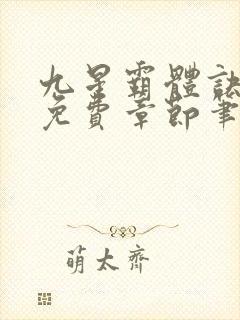 九星霸體訣
免費章節筆
萌太齊